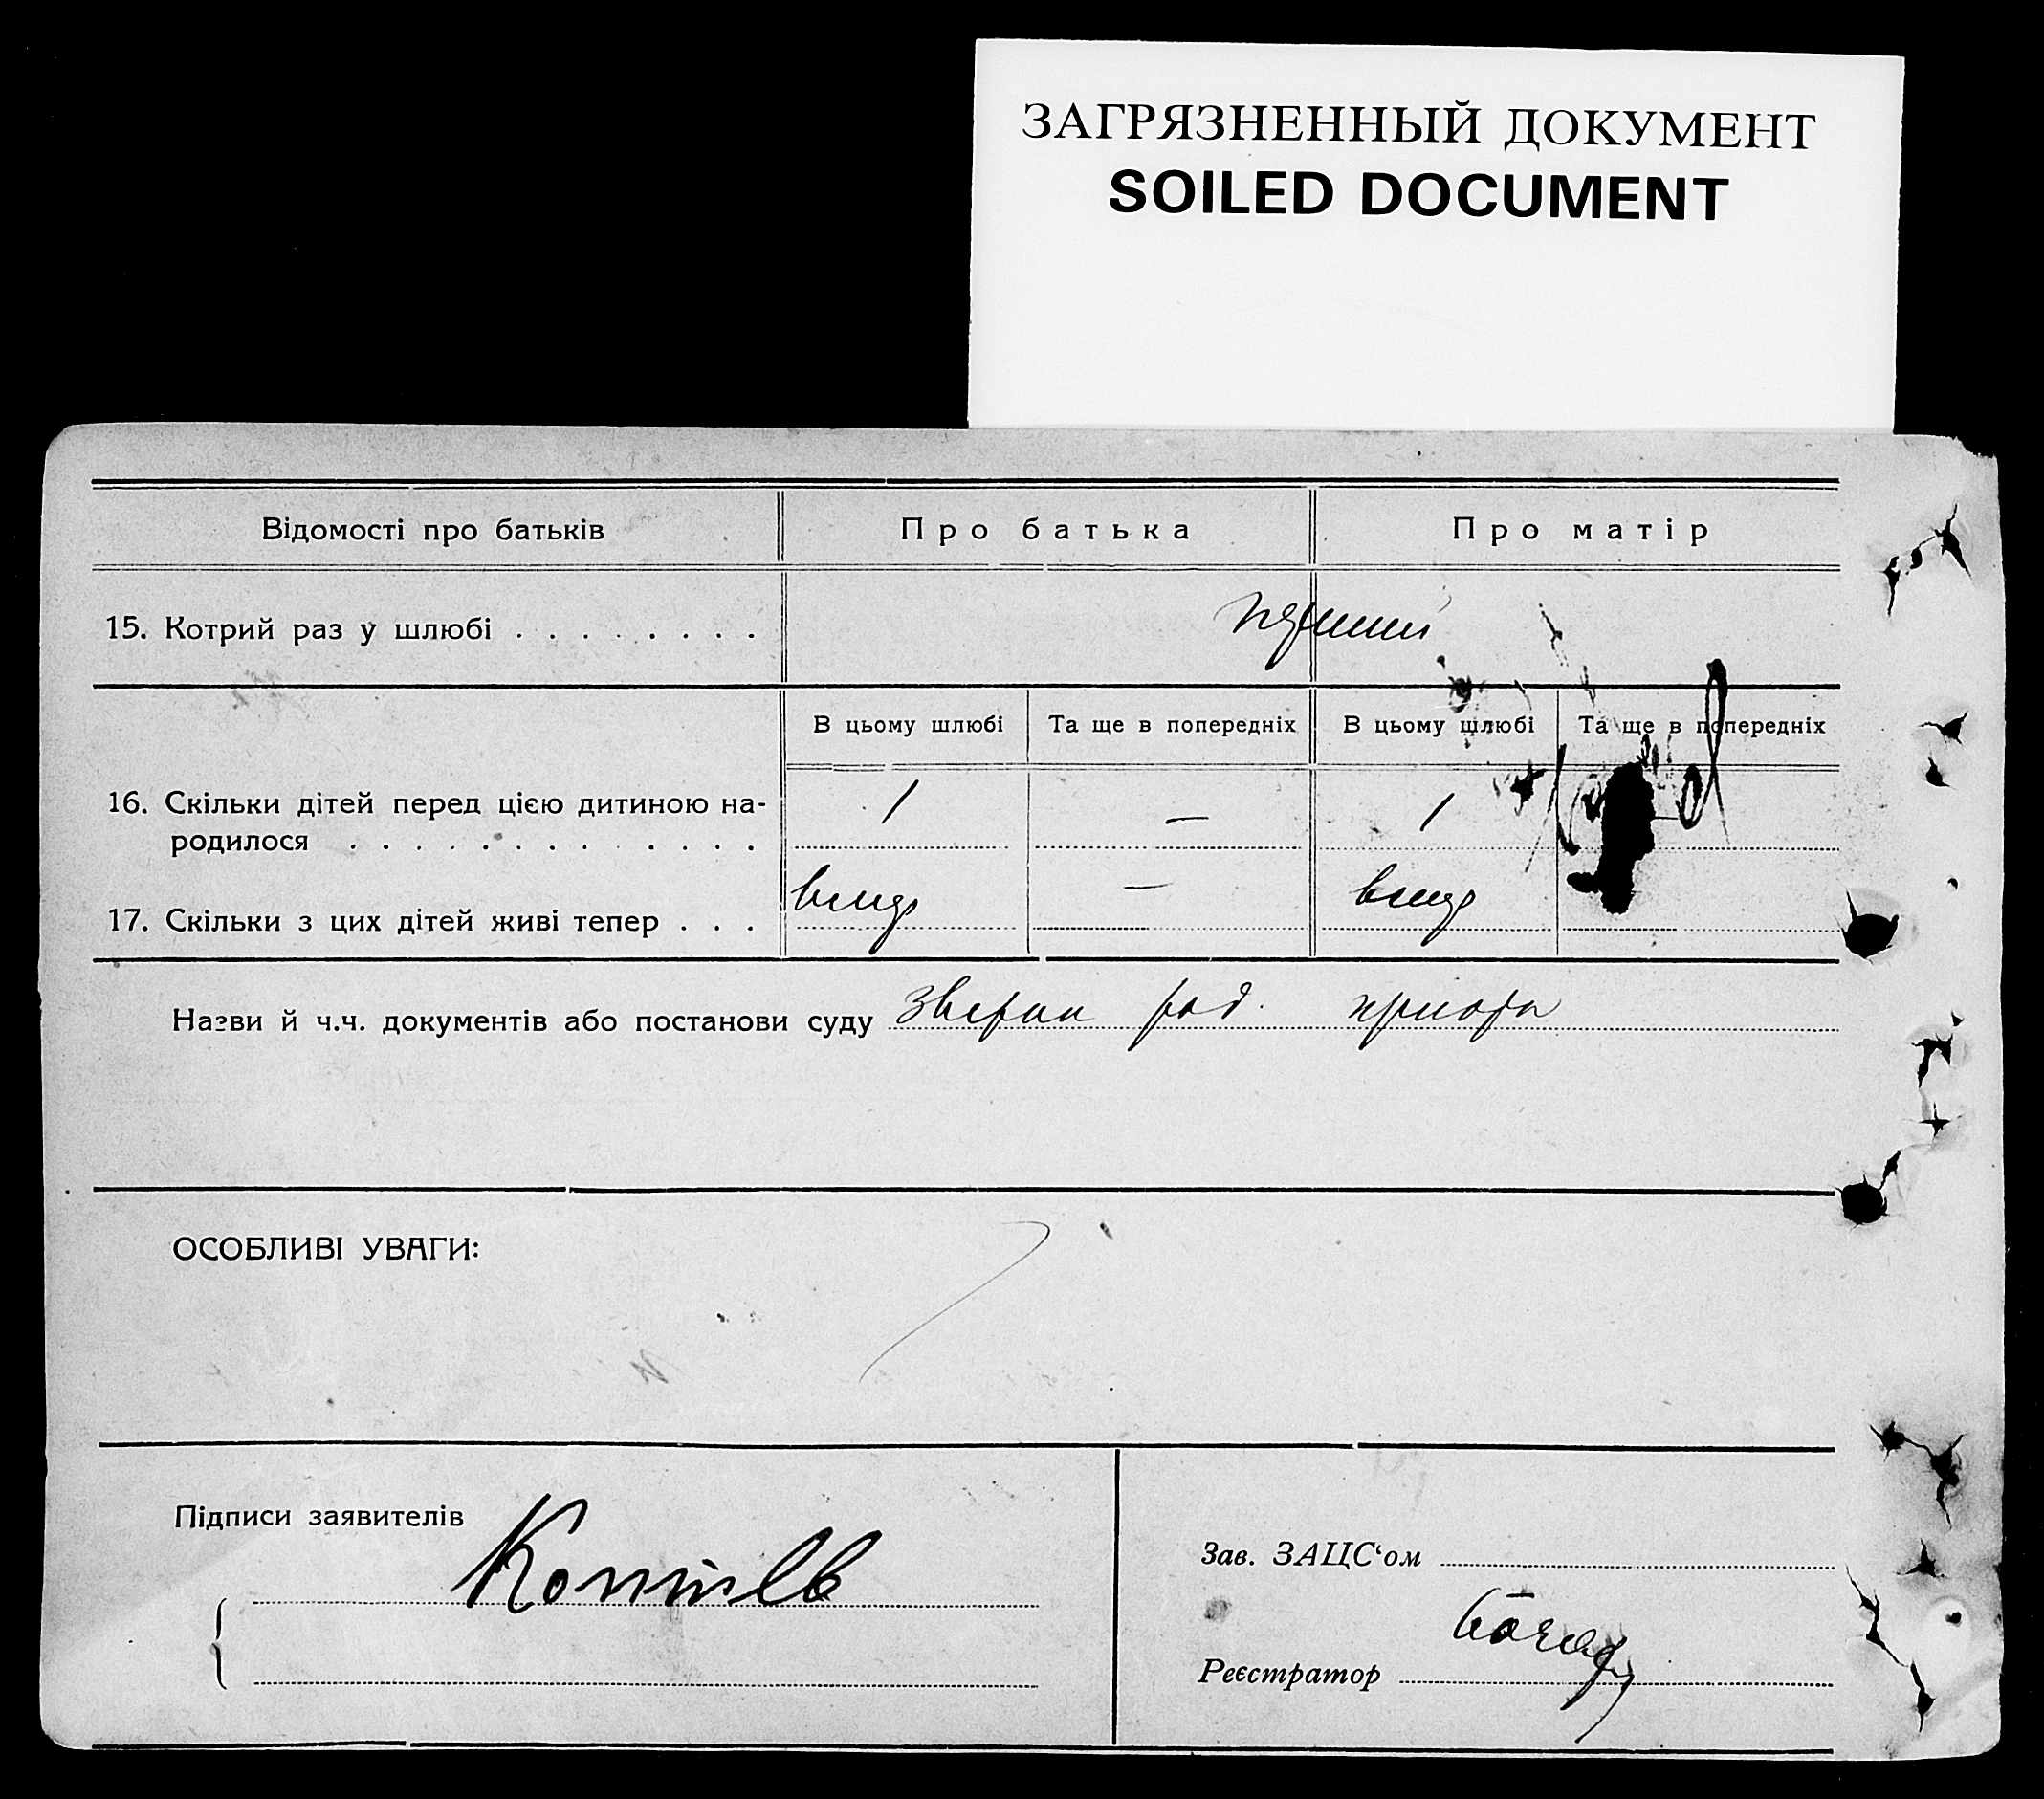 ЗАГРЯЗНЕННЫЙ ДОКУМЕНТ
SOILED DOCUMENT
Відомості про батьків Про батька Про матір
15. Котрий раз у шлюбі . . . . . . . . перший
В цьому шлюбі Та ще в попередніх В цьому шлюбі Та ще в попередніх
16. Скільки дітей перед цією дитиною на-
родилося . . . . . . . . . . . . . 1 — 1
17. Скільки з цих дітей живі тепер . . . вмер — вмер
Назви й ч.ч. документів або постанови суду
ОСОБЛИВІ УВАГИ:
Підписи заявителів
Зав. ЗАЦС‘ом
Реєстратор